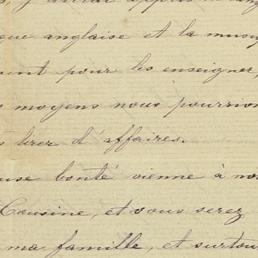 gue anglaise et la musi
pour les enseigner,
moyens nous pourrion
tirer d'affaires.
use bonté vienne à no
Cousine, et vous serez
ma famille, et surtou